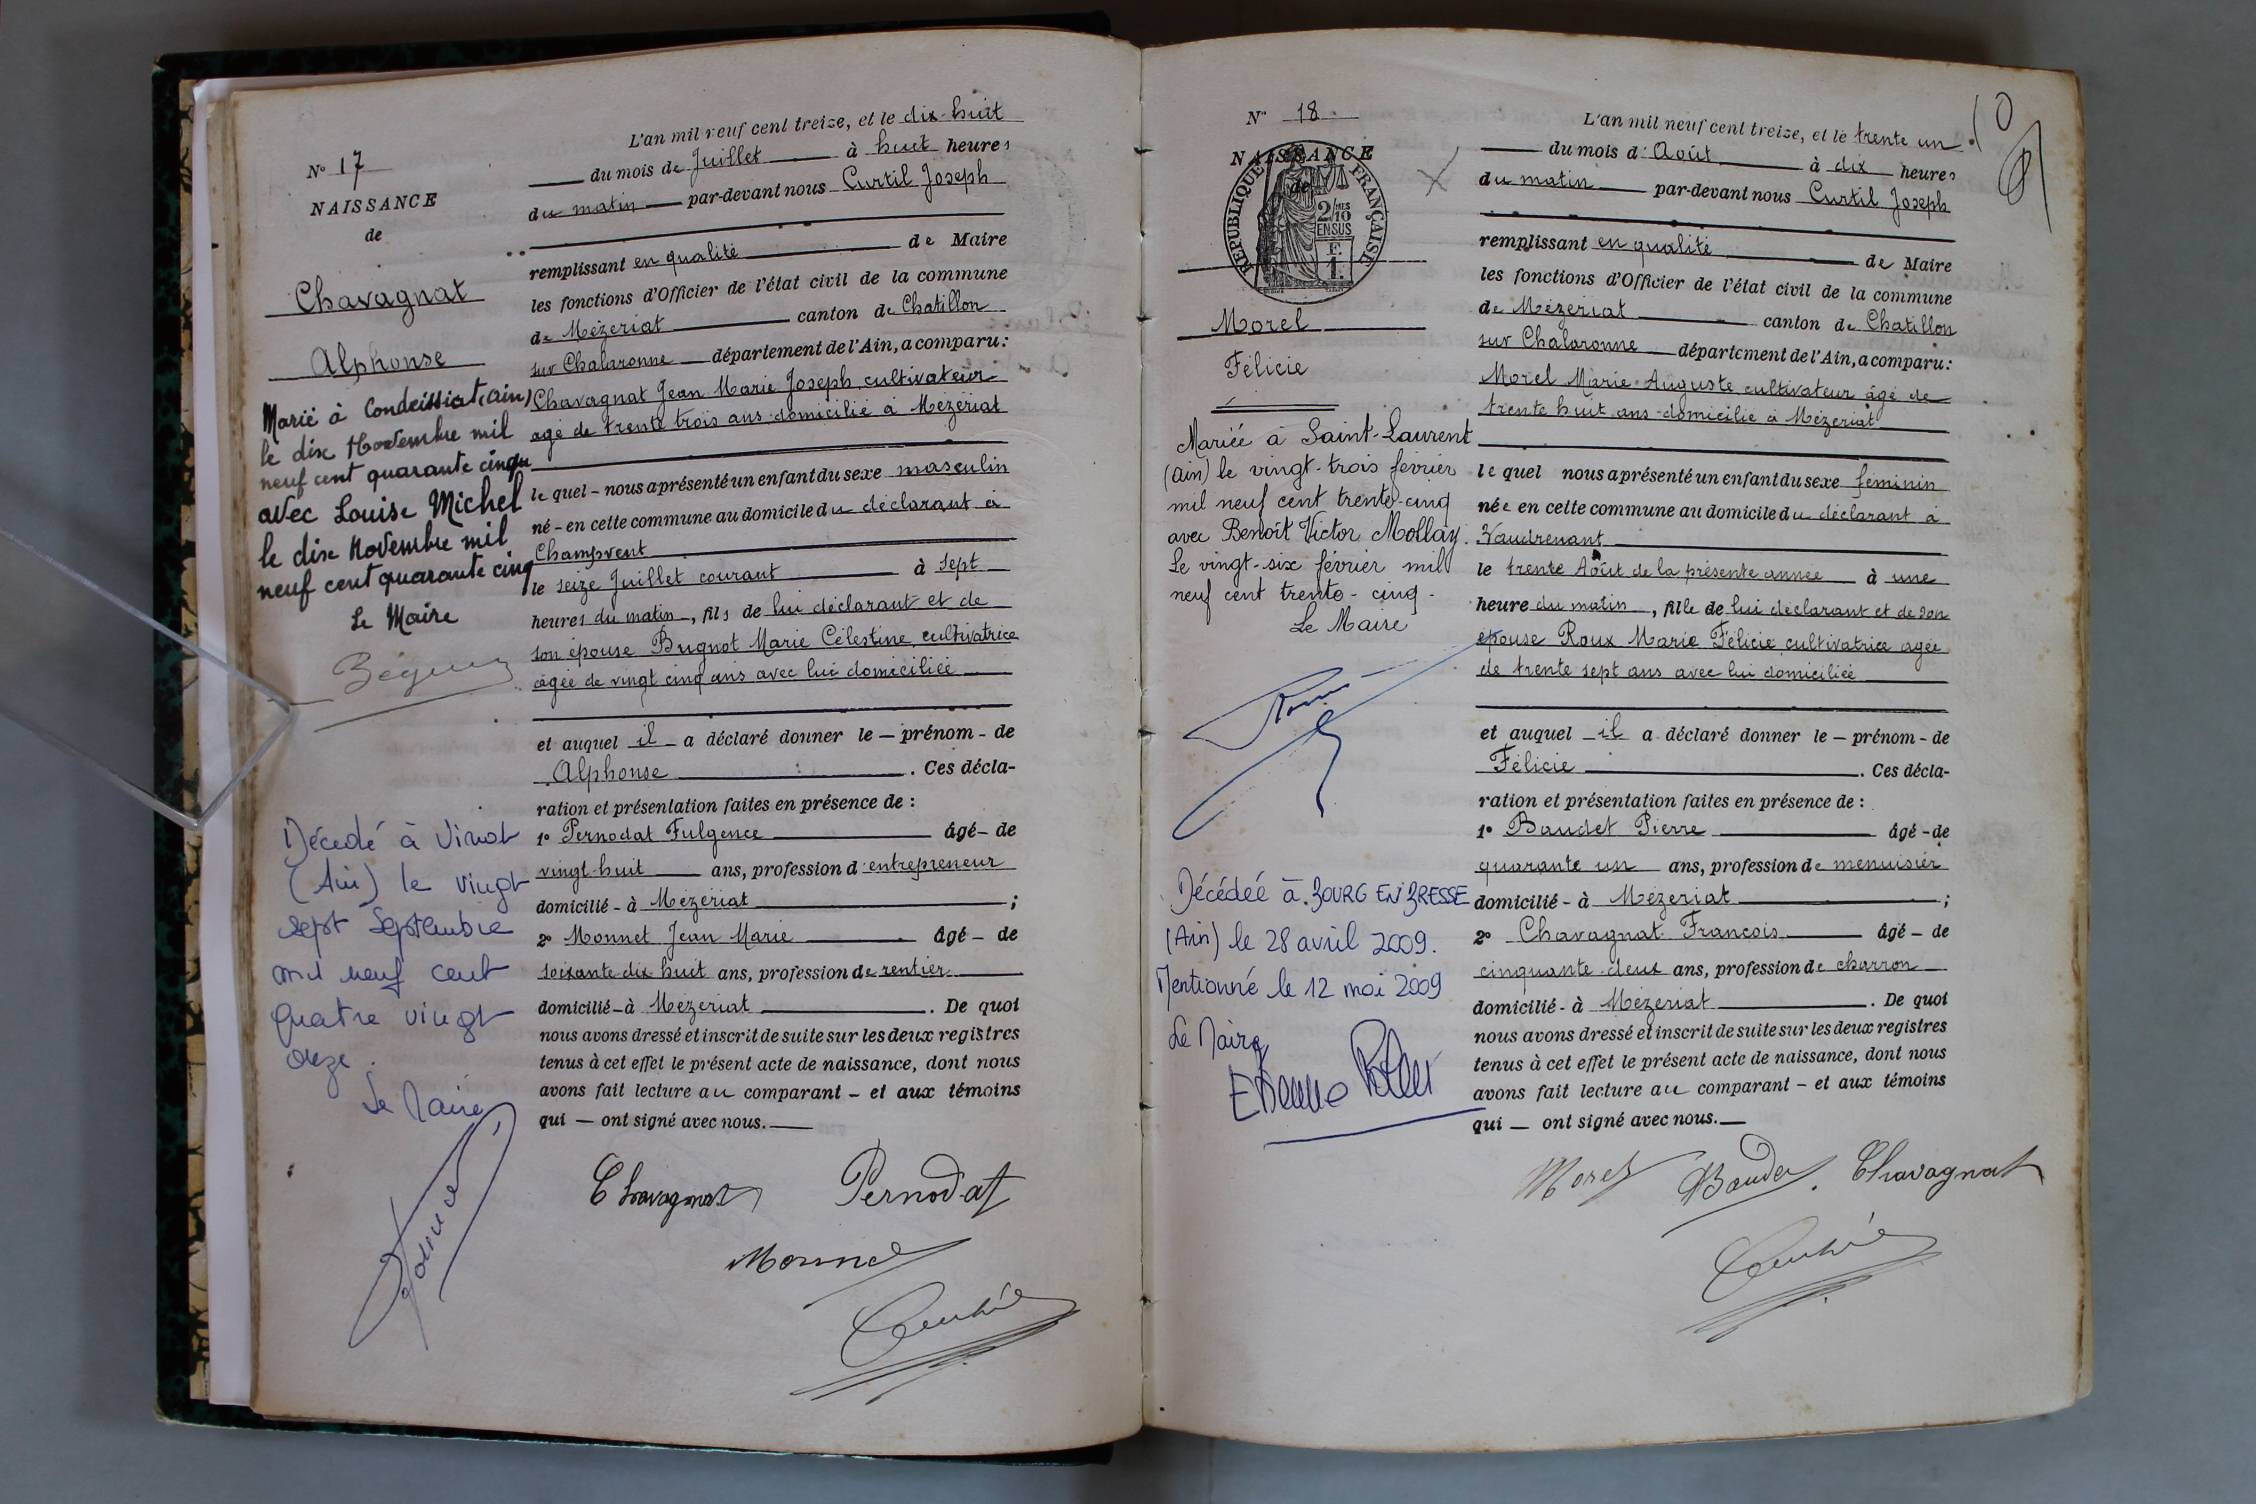 L'an mil neuf cent treize, et le dix-huit
N° 17
du mois de Juillet à huit heures
NAISSANCE
du matin par-devant nous Curtil Joseph
de
remplissant en qualité de Maire
Chavagnat
les fonctions d'Officier de l'état civil de la commune
de Mézériat canton de Chatillon
Alphonse
sur Chalaronne département de l'Ain, a comparu :
Chavagnat Jean Marie Joseph cultivateur
agé de trente trois ans domicilié à Mézériat
Marié à Condeissiat (Ain)
le dix Novembre mil
neuf cent quarante cinq
avec Louise Michel
le dix Novembre mil
neuf cent quarante cinq
Le Maire
le quel - nous a présenté un enfant du sexe masculin
né - en cette commune au domicile du déclarant à
Champvent
le seize Juillet courant à sept
heures du matin, fils de lui déclarant et de
son épouse Bugnot Marie Célestine, cultivatrice
âgée de vingt cinq ans avec lui domiciliée
et auquel il a déclaré donner le - prénom - de
Alphonse. Ces décla-
ration et présentation faites en présence de :
1° Pernodat Fulgence âgé - de
vingt-huit ans, profession d'entrepreneur
domicilié - à Mézériat ;
2° Monnet Jean Marie âgé - de
soixante dix huit ans, profession de rentier
domicilié - à Mézériat. De quoi
nous avons dressé et inscrit de suite sur les deux registres
tenus à cet effet le présent acte de naissance, dont nous
avons fait lecture au comparant - et aux témoins
qui — ont signé avec nous.
Décédé à Viriat
(Ain) le vingt
sept Septembre
mil neuf cent
quatre vingt
onze.
Le Maire
Chavagnat Pernodat
Monnet
N° 18
L'an mil neuf cent treize, et le trente un
NAISSANCE
de
RÉPUBLIQUE FRANÇAISE
2/10 MES
EN SUS
F.
1.
du mois d'Août à dix heures
du matin par-devant nous Curtil Joseph
remplissant en qualité de Maire
les fonctions d'Officier de l'état civil de la commune
Morel
de Mézériat canton de Chatillon
Félicie
sur Chalaronne département de l'Ain, a comparu :
Morel Marie Auguste cultivateur âgé de
trente huit ans domicilié à Mézériat
Mariée à Saint-Laurent
(Ain) le vingt-trois février
mil neuf cent trente-cinq
avec Benoît Victor Mollay.
Le vingt-six février mil
neuf cent trente-cinq -
Le Maire
le quel nous a présenté un enfant du sexe féminin
née en cette commune au domicile du déclarant à
Vaudrenant
le trente Août de la présente année à une
heure du matin, fille de lui déclarant et de son
épouse Roux Marie Félicie cultivatrice agée
de trente sept ans avec lui domiciliée
et auquel il a déclaré donner le - prénom - de
Félicie. Ces décla-
ration et présentation faites en présence de :
1° Baudet Pierre âgé - de
quarante un ans, profession de menuisier
domicilié - à Mézériat ;
2° Chavagnat François âgé - de
cinquante-deux ans, profession de charron
domicilié - à Mézériat. De quoi
nous avons dressé et inscrit de suite sur les deux registres
tenus à cet effet le présent acte de naissance, dont nous
avons fait lecture au comparant - et aux témoins
qui — ont signé avec nous.
Décédée à BOURG EN BRESSE
(Ain) le 28 avril 2009.
Mentionné le 12 mai 2009
Le Maire
Morel Baudet Chavagnat